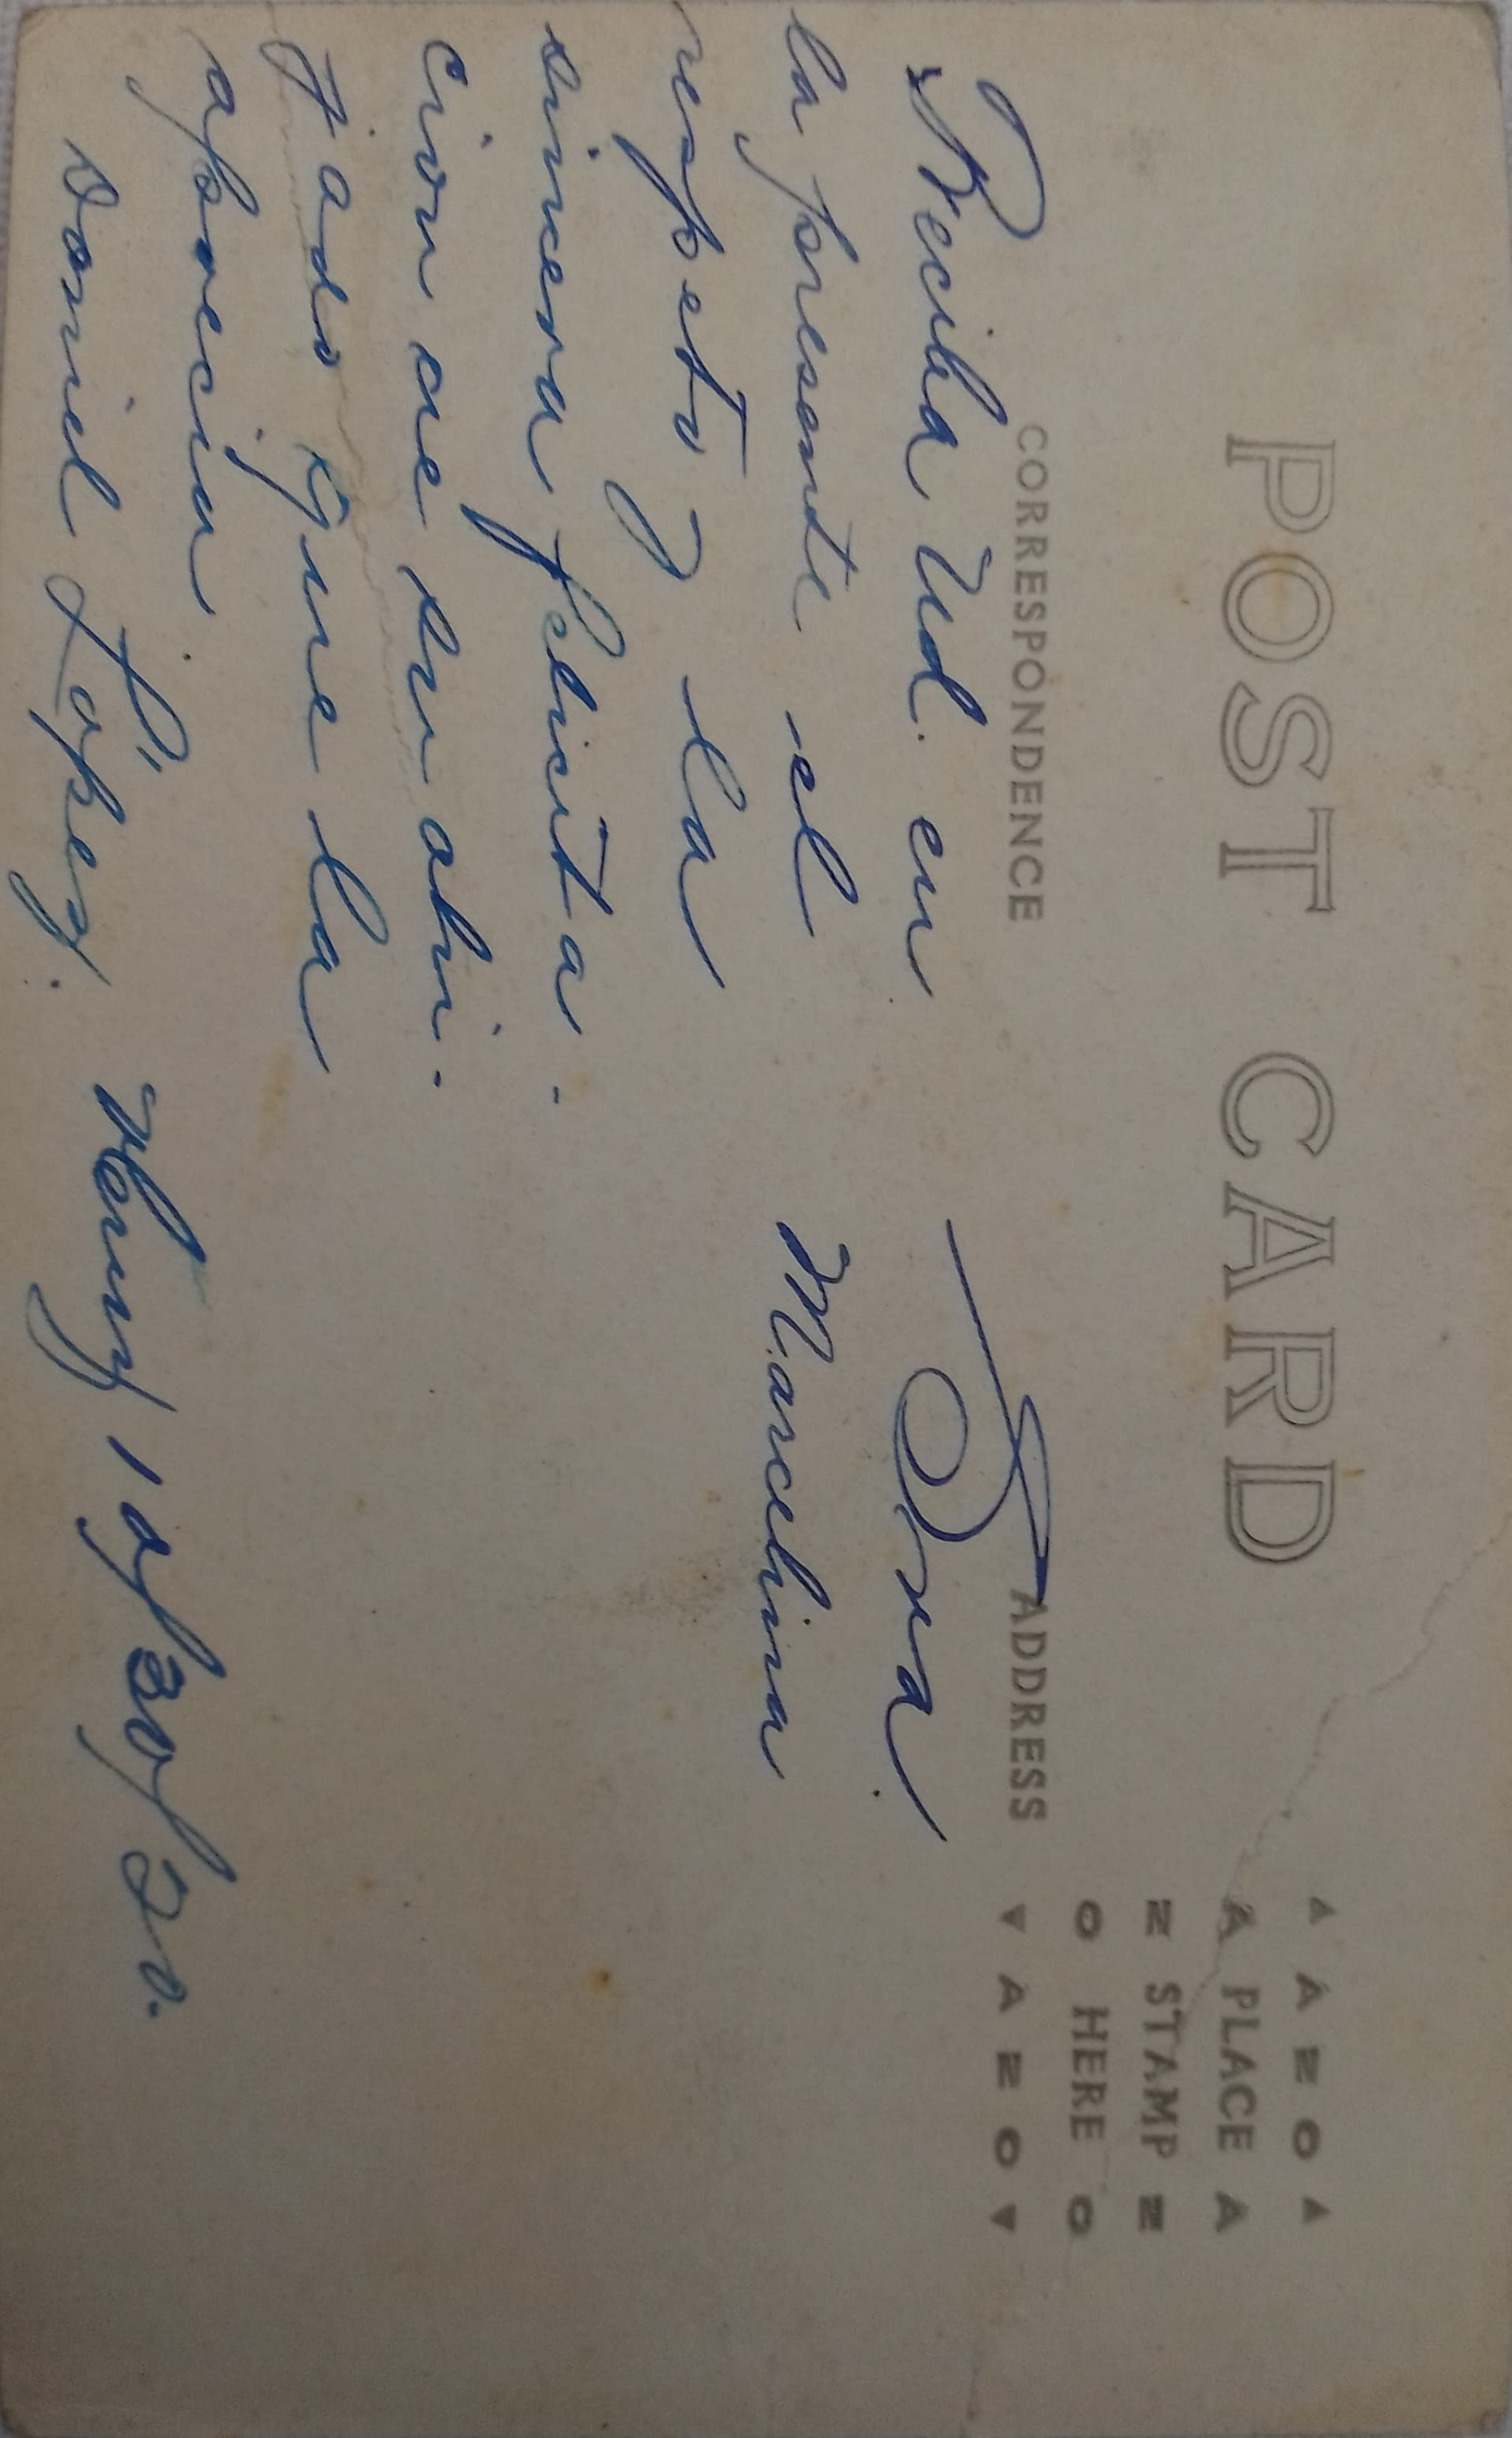 POST CARD
AZO
A PLACE A
Z STAMP Z
O HERE O
AZO
CORRESPONDENCE
Reciba Ud. en
la presente el
respeto y la
sincera felicita-
cion de su ahi-
jado que la
aprecia.
Daniel López.
ADDRESS
Sra.
Marcelina
10/30/20.